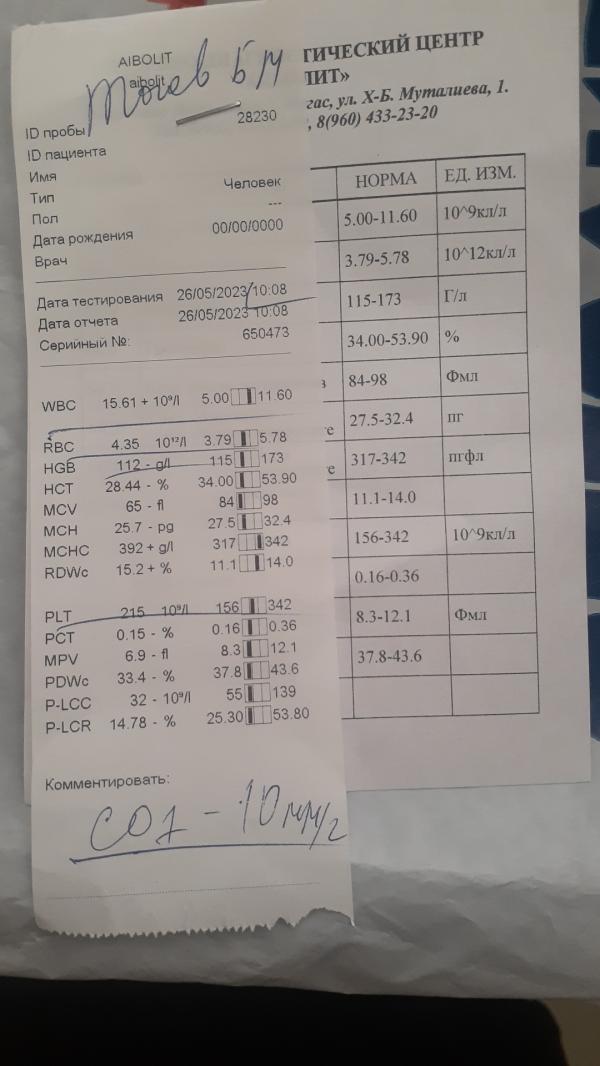 AIBOLIT
aibolit
ГИЧЕСКИЙ ЦЕНТР
ЛИТ»
гас, ул. Х-Б. Муталиева, 1.
, 8(960) 433-23-20
ID пробы 28230
ID пациента
Имя
Тип Человек
Пол ---
Дата рождения 00/00/0000
Врач
Дата тестирования 26/05/2023 10:08
Дата отчета 26/05/2023 10:08
Серийный №: 650473
WBC 15.61 + 10⁹/l 5.00 11.60
RBC 4.35 10¹²/l 3.79 5.78
HGB 112 - g/l 115 173
HCT 28.44 - % 34.00 53.90
MCV 65 - fl 84 98
MCH 25.7 - pg 27.5 32.4
MCHC 392 + g/l 317 342
RDWc 15.2 + % 11.1 14.0
PLT 215 10⁹/l 156 342
PCT 0.15 - % 0.16 0.36
MPV 6.9 - fl 8.3 12.1
PDWc 33.4 - % 37.8 43.6
P-LCC 32 - 10⁹/l 55 139
P-LCR 14.78 - % 25.30 53.80
Комментировать:
СОЭ - 10 мм/г
НОРМА ЕД. ИЗМ.
5.00-11.60 10^9кл/л
3.79-5.78 10^12кл/л
115-173 Г/л
34.00-53.90 %
84-98 Фмл
27.5-32.4 пг
317-342 пгфл
11.1-14.0
156-342 10^9кл/л
0.16-0.36
8.3-12.1 Фмл
37.8-43.6